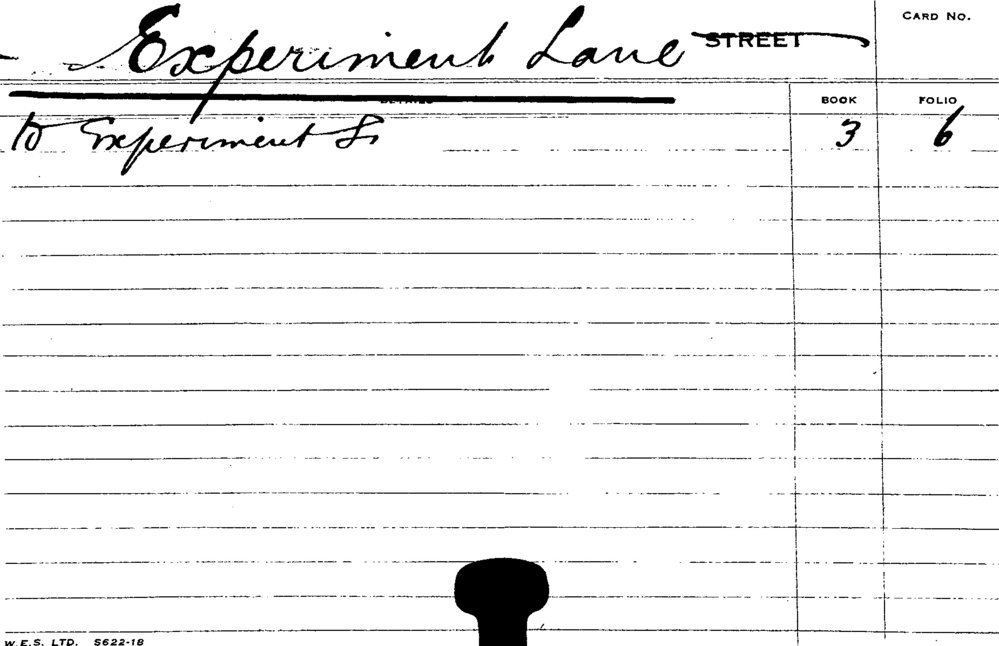 Experiment Lane STREET
CARD NO.
DETAILS BOOK FOLIO
to Experiment St 3 6
W.E.S. LTD. S622-18